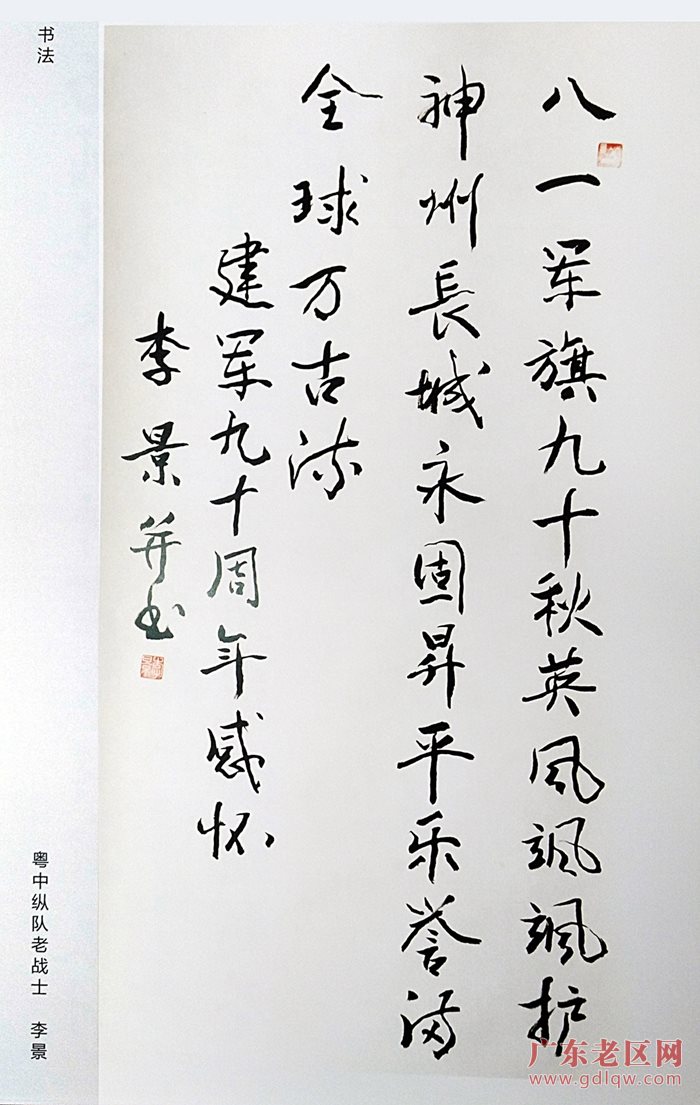 八一军旗九十秋英风飒飒护
神州長城永固昇平乐誉满
全球万古流
建军九十周年感怀
李景并书
书法
粤中纵队老战士 李景
广东老区网
www.gdlqw.com